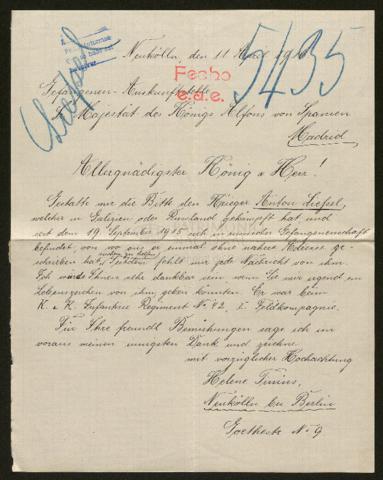 Neukölln, den 11 April 1916
Fecho
e.d.e.
5435
Gefangenen-Auskunftstelle
Majestät des Königs Alfons von Spanien
Madrid
Allergnädigster König u Herr!
Gestatte mir die Bitte den Krieger Anton
welcher in Galizien oder Russland gekämpft hat und
seit dem 19 September 1915 sich in russischer Gefangenschaft
befindet, von wo aus er einmal ohne nähere Adresse ge-
schrieben hat, seitdem fehlt mir jede Nachricht von ihm.
Ich würde Ihnen sehr dankbar sein wenn Sie mir irgend ein
Lebenszeichen von ihm geben könnten. Er war beim
K. u K. Infanterie Regiment No 42, Feldkompagnie.
Für Ihre freundl Bemühungen sage ich im
voraus meinen innigsten Dank und zeichne
mit vorzüglicher Hochachtung
Helene
Neukölln bei Berlin
Goethestr No 9